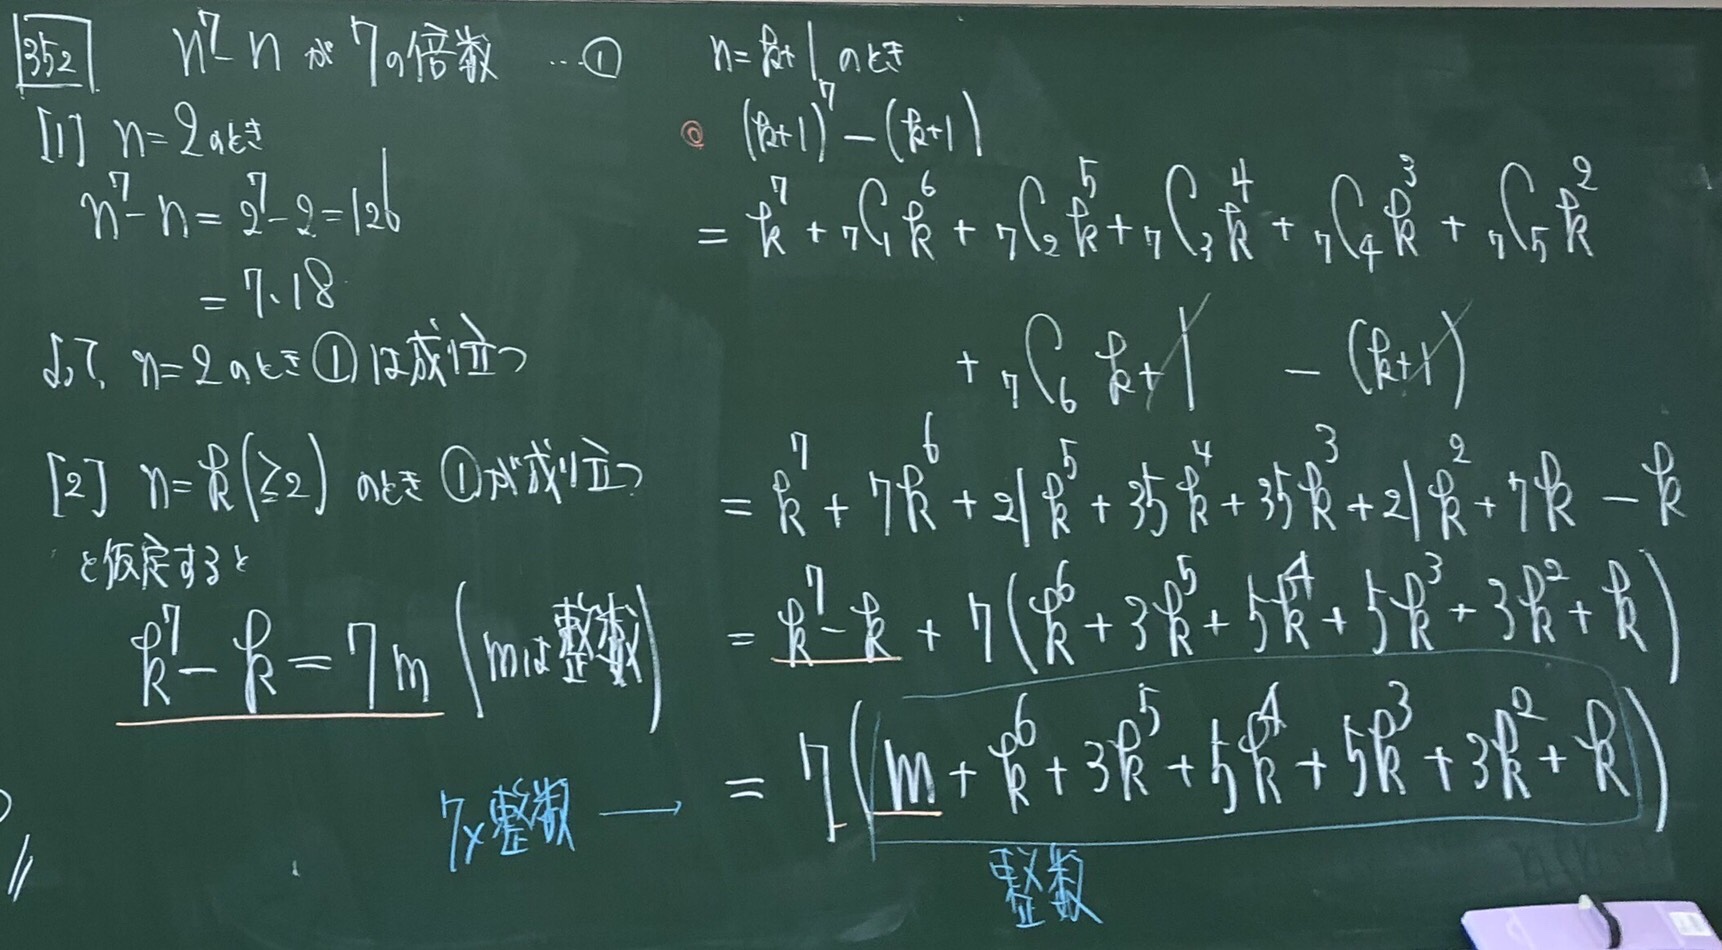 352 n⁷-n が 7の倍数 …①
[1] n=2のとき
n⁷-n=2⁷-2=126
=7・18
よって、n=2のとき①は成り立つ
[2] n=k(≧2) のとき ①が成り立つ
と仮定すると
k⁷-k=7m (mは整数)
n=k+1のとき
◎ (k+1)⁷-(k+1)
=k⁷+₇C₁k⁶+₇C₂k⁵+₇C₃k⁴+₇C₄k³+₇C₅k²
+₇C₆k+1 -(k+1)
=k⁷+7k⁶+21k⁵+35k⁴+35k³+21k²+7k-k
=k⁷-k+7(k⁶+3k⁵+5k⁴+5k³+3k²+k)
7×整数 → =7(m+k⁶+3k⁵+5k⁴+5k³+3k²+k)
整数